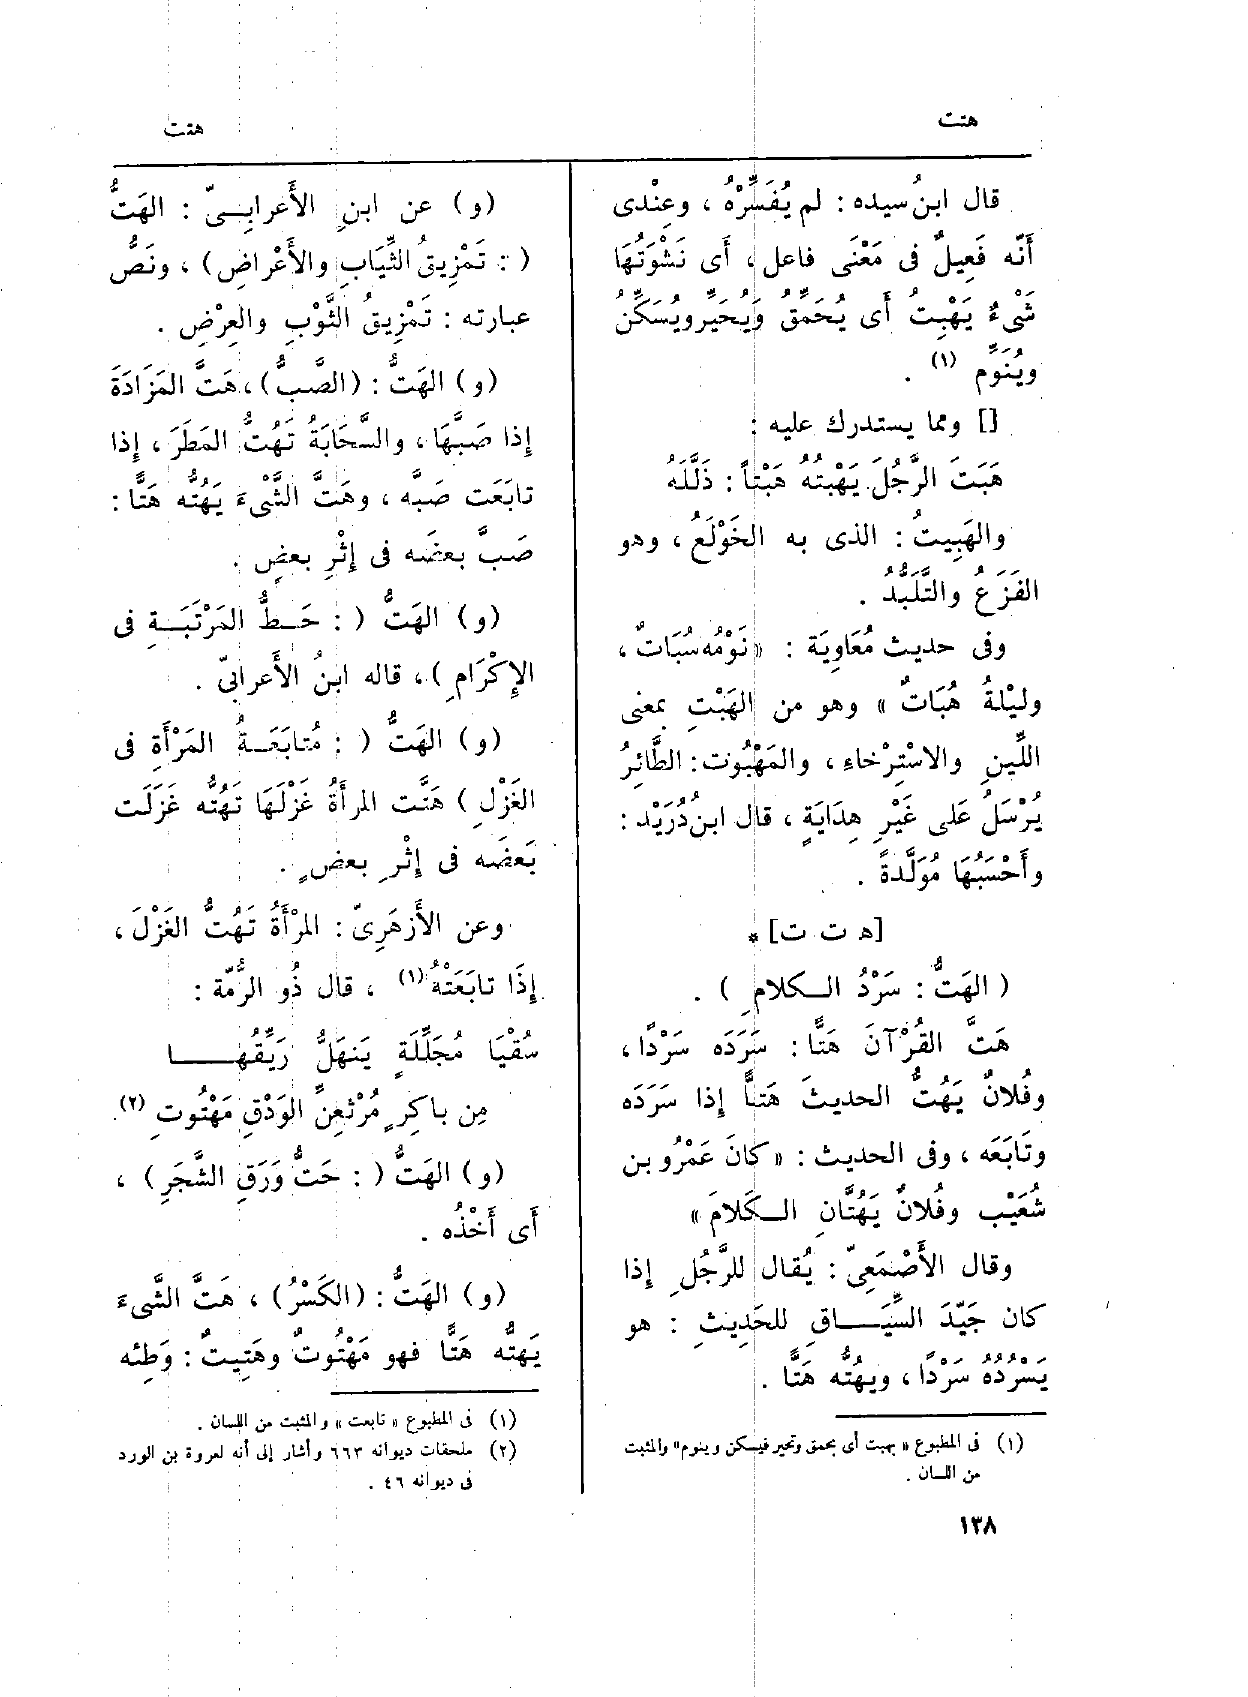 هتت
هتت
قال ابنُ سيده : لم يُفَسِّرْهُ ، وعِنْدِى
أَنَّه فَعِيلٌ فى مَعْنَى فاعل ، أَى نَشْوَتُها
شَىْءٌ يَهْبِتُ أَى يُحَمِّقُ ويُحَيِّرُ ويُسَكِّنُ
ويُنَوِّم (١) .
[] ومما يستدرك عليه :
هَبَتَ الرَّجُلَ يَهْبِتُهُ هَبْتاً : ذَلَّلَهُ
والهَبِيتُ : الذى به الخَوْلَعُ ، وهو
الفَزَعُ والتَّلَبُّدُ .
وفى حديث مُعَاوِيَة : « نَوْمُه سُبَاتٌ ،
ولَيْلَهُ هُبَاتٌ » وهو من الهَبْتِ بمعنى
اللِّينِ والاسْتِرْخاءِ ، والمَهْبُوت : الطَّائِرُ
يُرْسَلُ عَلى غَيْرِ هِدَايَةٍ ، قال ابنُ دُرَيْد :
وأَحْسَبُهَا مُوَلَّدةً .
[ه ت ت] *
( الهَتُّ : سَرْدُ الــكلامِ ) .
هَتَّ القُرْآنَ هَتًّا : سَرَدَه سَرْدًا ،
وفُلانٌ يَهُتُّ الحديثَ هَتاًّ إذا سَرَدَه
وتَابَعَه ، وفى الحديث : « كانَ عَمْرُو بن
شُعَيْب وفُلانٌ يَهُتَّانِ الــكَلامَ »
وقال الأَصْمَعِىّ : يُقال للرَّجُلِ إذا
كان جَيِّدَ السِّيَــاقِ للحَدِيثِ : هو
يَسْرُدُهُ سَرْدًا ، ويهُتُّه هَتًّا .
(١) فى المطبوع « يهبت أى يحمق وتحير فيسكن وينوم » والمثبت
من اللسان .
(و) عن ابنِ الأَعرابِــىّ : الهَتُّ
( : تَمْزِيقُ الثِّيَابِ والأَعْراضِ) ، ونَصُّ
عبارته : تَمْزِيقُ الثَّوْبِ والعِرْضِ .
(و) الهَتُّ : (الصَّبُّ) ، هَتَّ المَزَادَةَ
إذا صَبَّهَا ، والسَّحَابَةُ تَهُتُّ المَطَرَ ، إذا
تابَعَت صَبَّه ، وهَتَّ الشَّىْءَ يَهُتُّه هَتًّا :
صَبَّ بعضَه فى إثْرِ بعضٍ .
(و) الهَتُّ ( : حَــطُّ المَرْتَبَــةِ فى
الإكْرَامِ ) ، قاله ابنُ الأَعرابىّ .
(و) الهَتُّ ( : مُتابَعَــةُ المَرْأَةِ فى
الغَزْلِ ) هَتَّت المرأَةُ غَزْلَهَا تَهُتُّه غَزَلَت
بَعضَه فى إثْرِ بعضٍ .
وعن الأَزهَرِىّ : المرْأَةُ تَهُتُّ الغَزْلَ ،
إذَا تابَعَتْهُ (١) ، قال ذُو الرُّمّة :
سُقْيَا مُجَلِّلَةٍ يَنهَلُّ رَيِّقُهَــا
مِن باكِرٍ مُرْثَعِنِّ الوَدْقِ مَهْتُوتِ (٢).
(و) الهَتُّ ( : حَتُّ وَرَقِ الشَّجَرِ ) ،
أَى أَخْذُه .
(و) الهَتُّ : (الكَسْرُ) ، هَتَّ الشَّىءَ
يَهتُّه هَتًّا فهو مَهْتُوتٌ وهَتِيتٌ : وَطِئَه
(١) فى المطبوع « تابعت » والمثبت من اللسان .
(٢) ملحقات ديوانه ٦٦٣ وأشار إلى أنه لعروة بن الورد
فى ديوانه ٤٦ .
١٣٨